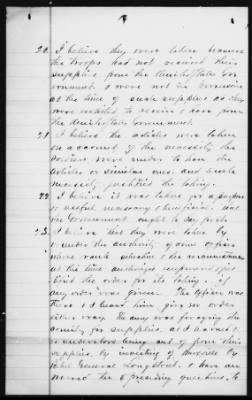 20. I believe they were taken because
the troops had not received their
supplies from the United States Gov-
ernment & were not in possession
at the time of such supplies as they
were entitled to receive & have from
the United States Government.
21 I believe the articles were taken
on account of the necessity the
soldiers were under to have the
articles or similar ones. and such
necessity justified the taking.
22 I believe it was taken for a
useful necessary & beneficial and
the Government ought to pay for it
23. I believe that they were taken by
& under the authority of some officer
whose rank situation & the circumstances
at the time authorized empowered &
the order for its taking. if
any order was given. The officer was
there & I heard him give no order
either way. The army was foraying the
county for supplies. as I learned &
understood being cut off from their
supplies. by investing of Knoxville by
Rebel General Longstreet. I have an-
swered the 5 preceding questions, to